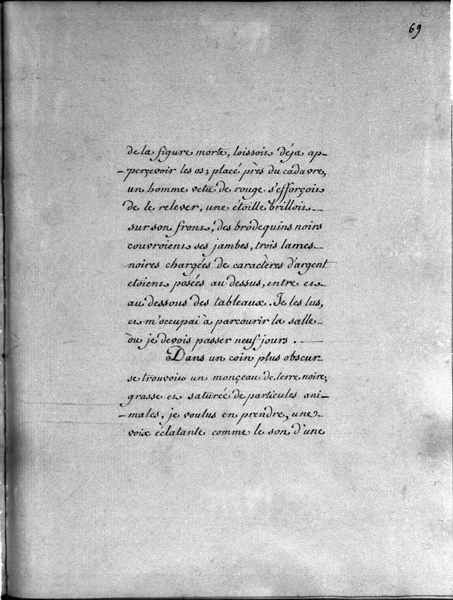 69
de la figure morte, laissoit déja ap-
-perçevoir les os; placé près du cadavre,
un homme vetu de rouge s'efforçoit
de le relever, une étoille brilloit
sur son front, des brodequins noirs
couvroient ses jambes, trois lames
noires chargées de caractères d'argent
etoient posées au dessus, entre et
au dessous des tableaux. Je les lus,
et m'occupai à parcourir la salle
où je devois passer neuf jours.
Dans un coin plus obscur
se trouvoit un monçeau de terre noire,
grasse et saturée de particules ani-
-males, je voulus en prendre, une
voix éclatante comme le son d'une